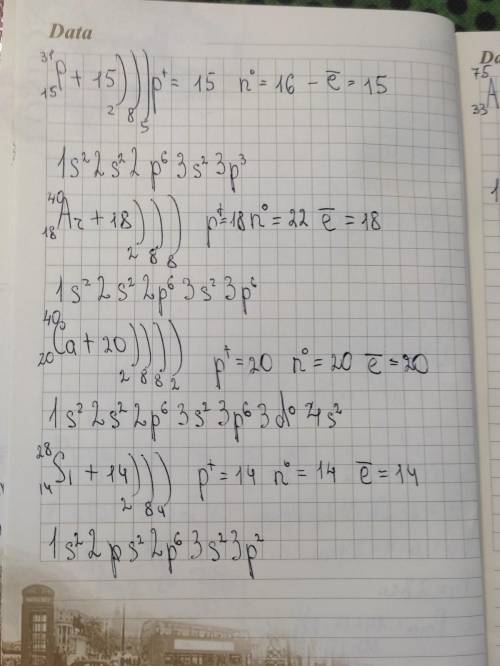 Data
³¹₁₅P + 15)))p⁺ = 15 n⁰ = 16 - e̅ = 15
2 8 5
1s² 2s² 2p⁶ 3s² 3p³
⁴⁰₁₈Ar + 18))) p⁺ = 18 n⁰ = 22 e̅ = 18
2 8 8
1s² 2s² 2p⁶ 3s² 3p⁶
⁴⁰₂₀Ca + 20)))) p⁺ = 20 n⁰ = 20 e̅ = 20
2 8 8 2
1s² 2s² 2p⁶ 3s² 3p⁶ 3d⁰ 4s²
²⁸₁₄Si + 14))) p⁺ = 14 n⁰ = 14 e̅ = 14
2 8 4
1s² 2ps² 2p⁶ 3s² 3p²
Da
75
33
A
1